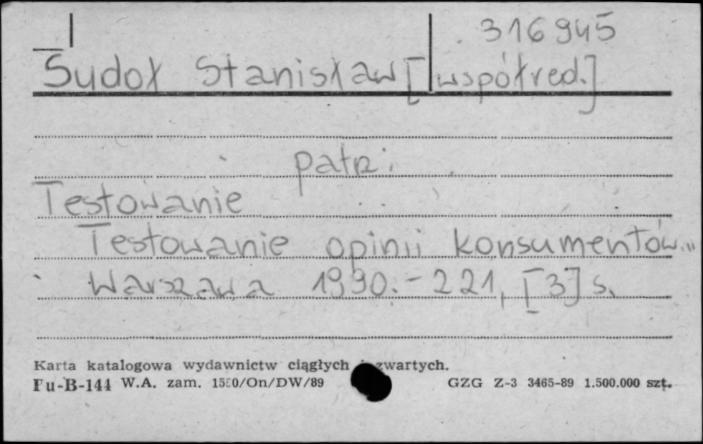 316945
Sudoł Stanisław [współred.]
patrz:
Testowanie
Testowanie opinii konsumentów...
Warszawa 1990. - 221, [3] s.
Karta katalogowa wydawnictw ciągłych i zwartych.
Pu-B-144 W.A. zam. /On/DW/89 GZG Z-3 3465-89 1.500.000 szt.